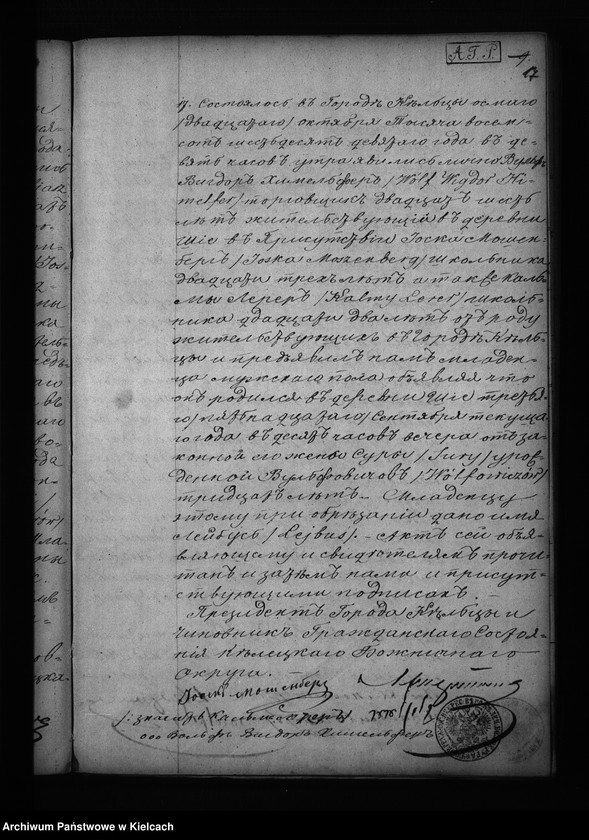 А.Г.Р.
17. Состоялось въ Городѣ Кѣльцы осмаго
/двадцатаго/ октября тысяча восем-
сотъ шестьдесятъ девятаго года въ де-
вять часовъ утра явились лично Вульфъ
Вигдоръ Химельферъ /Wolf Wigdor Hi-
melfer/ торговщикъ двадцать шесть
лѣтъ жительствующій въ деревни
въ Присутствіи Госка Мошен-
бергъ /Joska Moszenberg/ школьника
двадцати трехъ лѣтъ а также Каль-
мы Лереръ /Kalmy Lerer/ школь-
ника двадцати два лѣтъ отъ роду
жительствующихъ въ городѣ Кѣль-
цы и предъявилъ намъ младен-
ца мужскаго пола объявляя что
онъ родился въ деревни третья-
го /пятьнадцатаго/ Сентября текуща-
го года въ десять часовъ вечера отъ за-
конной его жены Суры /Sury/ урож-
денной Вульфовичовъ /Wolfowiczow/
тридцать лѣтъ. Младенцу
этому при обрѣзаніи дано имя
Лейбусь /Lejbus/. — Актъ сей объя-
вляющему и свидѣтелямъ прочи-
танъ и затѣмъ нами и присут-
ствующими подписанъ. —
Президентъ Города Кѣльцы и
Чиновникъ Гражданскаго Состоя-
нія Кѣлецкаго Божничнаго
Округа.
Мошенберг
Кальма Лереръ
Вольфъ Вигдоръ Химельферъ
Archiwum Państwowe w Kielcach